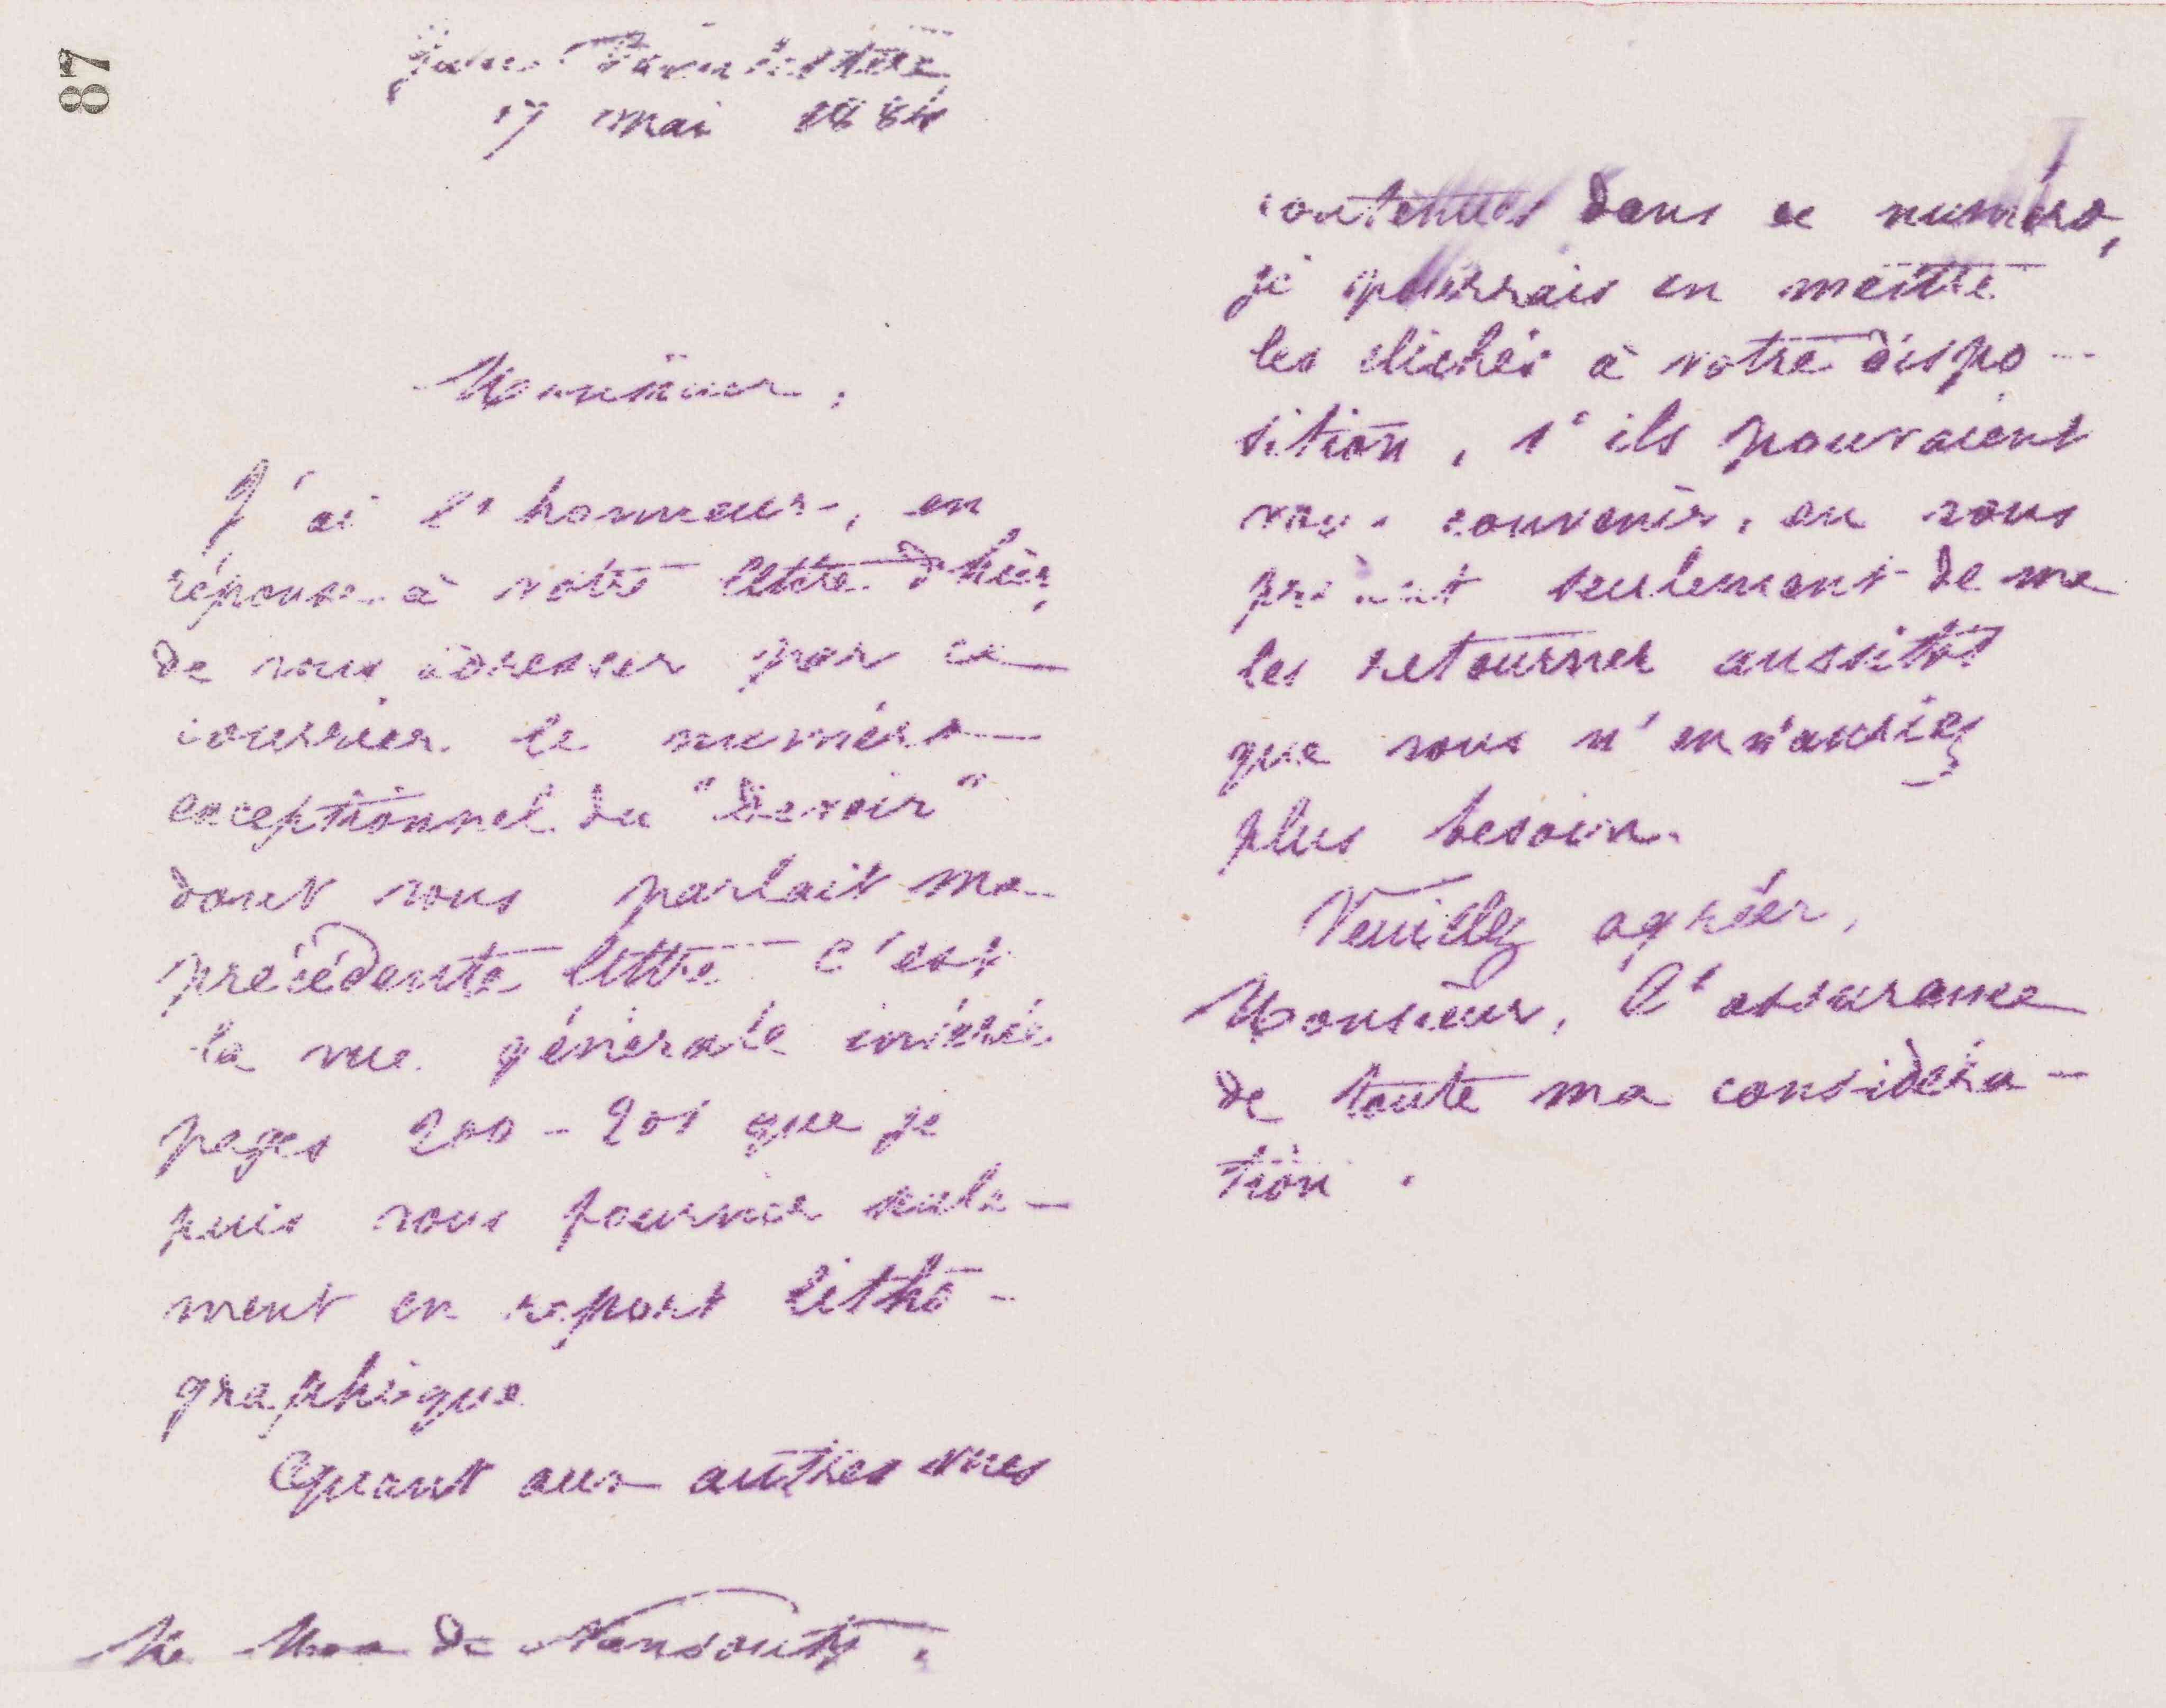 87
Guise Familistère
17 mai 1884
Monsieur,
J'ai l'honneur, en
réponse à votre lettre d'hier,
de vous adresser par ce
courrier le numéro
exceptionnel du "Devoir"
dont vous parlait ma
précédente lettre. C'est
la vue générale insérée
pages 200-201 que je
puis vous fournir seule-
ment en report litho-
graphique
Quant aux autres vues
Mr Max de Nansouty.
contenues dans ce numéro,
je pourrais en mettre
les clichés à votre dispo-
sition, s'ils pouvaient
vous convenir, en vous
priant seulement de me
les retourner aussitôt
que vous n'en n'auriez
plus besoin.
Veuillez agréer,
Monsieur, l'assurance
de toute ma considéra-
tion.